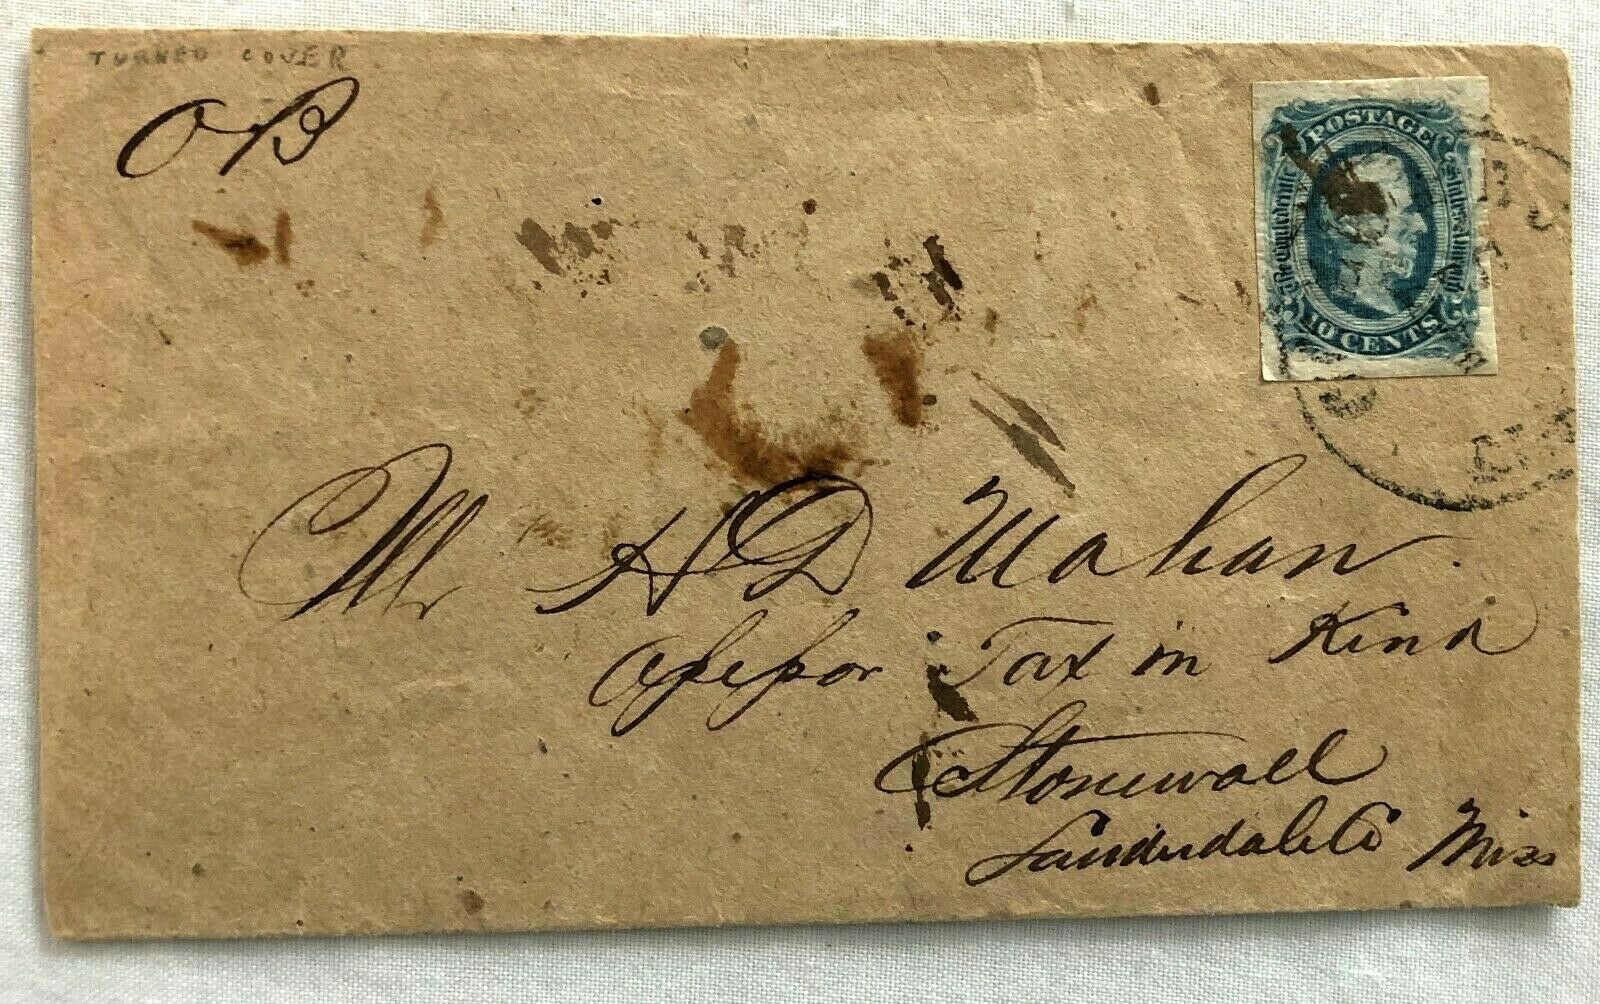 TURNED COVER
OB
POSTAGE
The Confederate States of America
10 CENTS
Mr H D Mahan
Assessor Tax in Kind
Stonewall
Lauderdale Co Miss